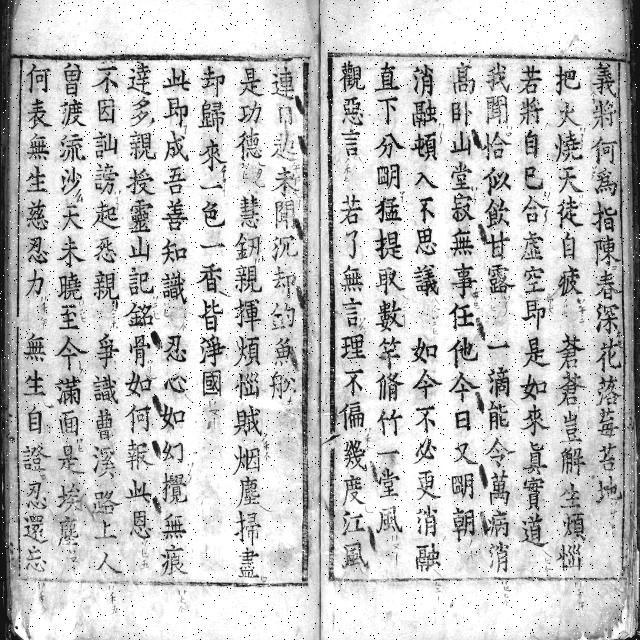 義將何為指陳春深花落莓苔地
把火燒天徒自疲　蒼蒼豈解生煩惱
若將自己合虛空即是如來眞實道
我聞恰似飲甘露　一滴能令萬病消
高臥山堂寂無事任他今日又明朝
消融頓入不思議　如今不必更消融
直下分明猛提取數竿脩竹一堂風
觀惡言　若了無言理不偏幾度江風
連日起未聞沉却釣魚船
是功德　慧劒親揮煩惱賊烟塵掃盡
却歸來一色一香皆淨國
此即成吾善知識　忍心如幻攪無痕
達多親授靈山記銘骨如何報此恩
不因訕謗起怨親　爭識曹溪路上人
曾渡流沙天未曉至今滿面是埃塵
何表無生慈忍力　無生自證忍還忘